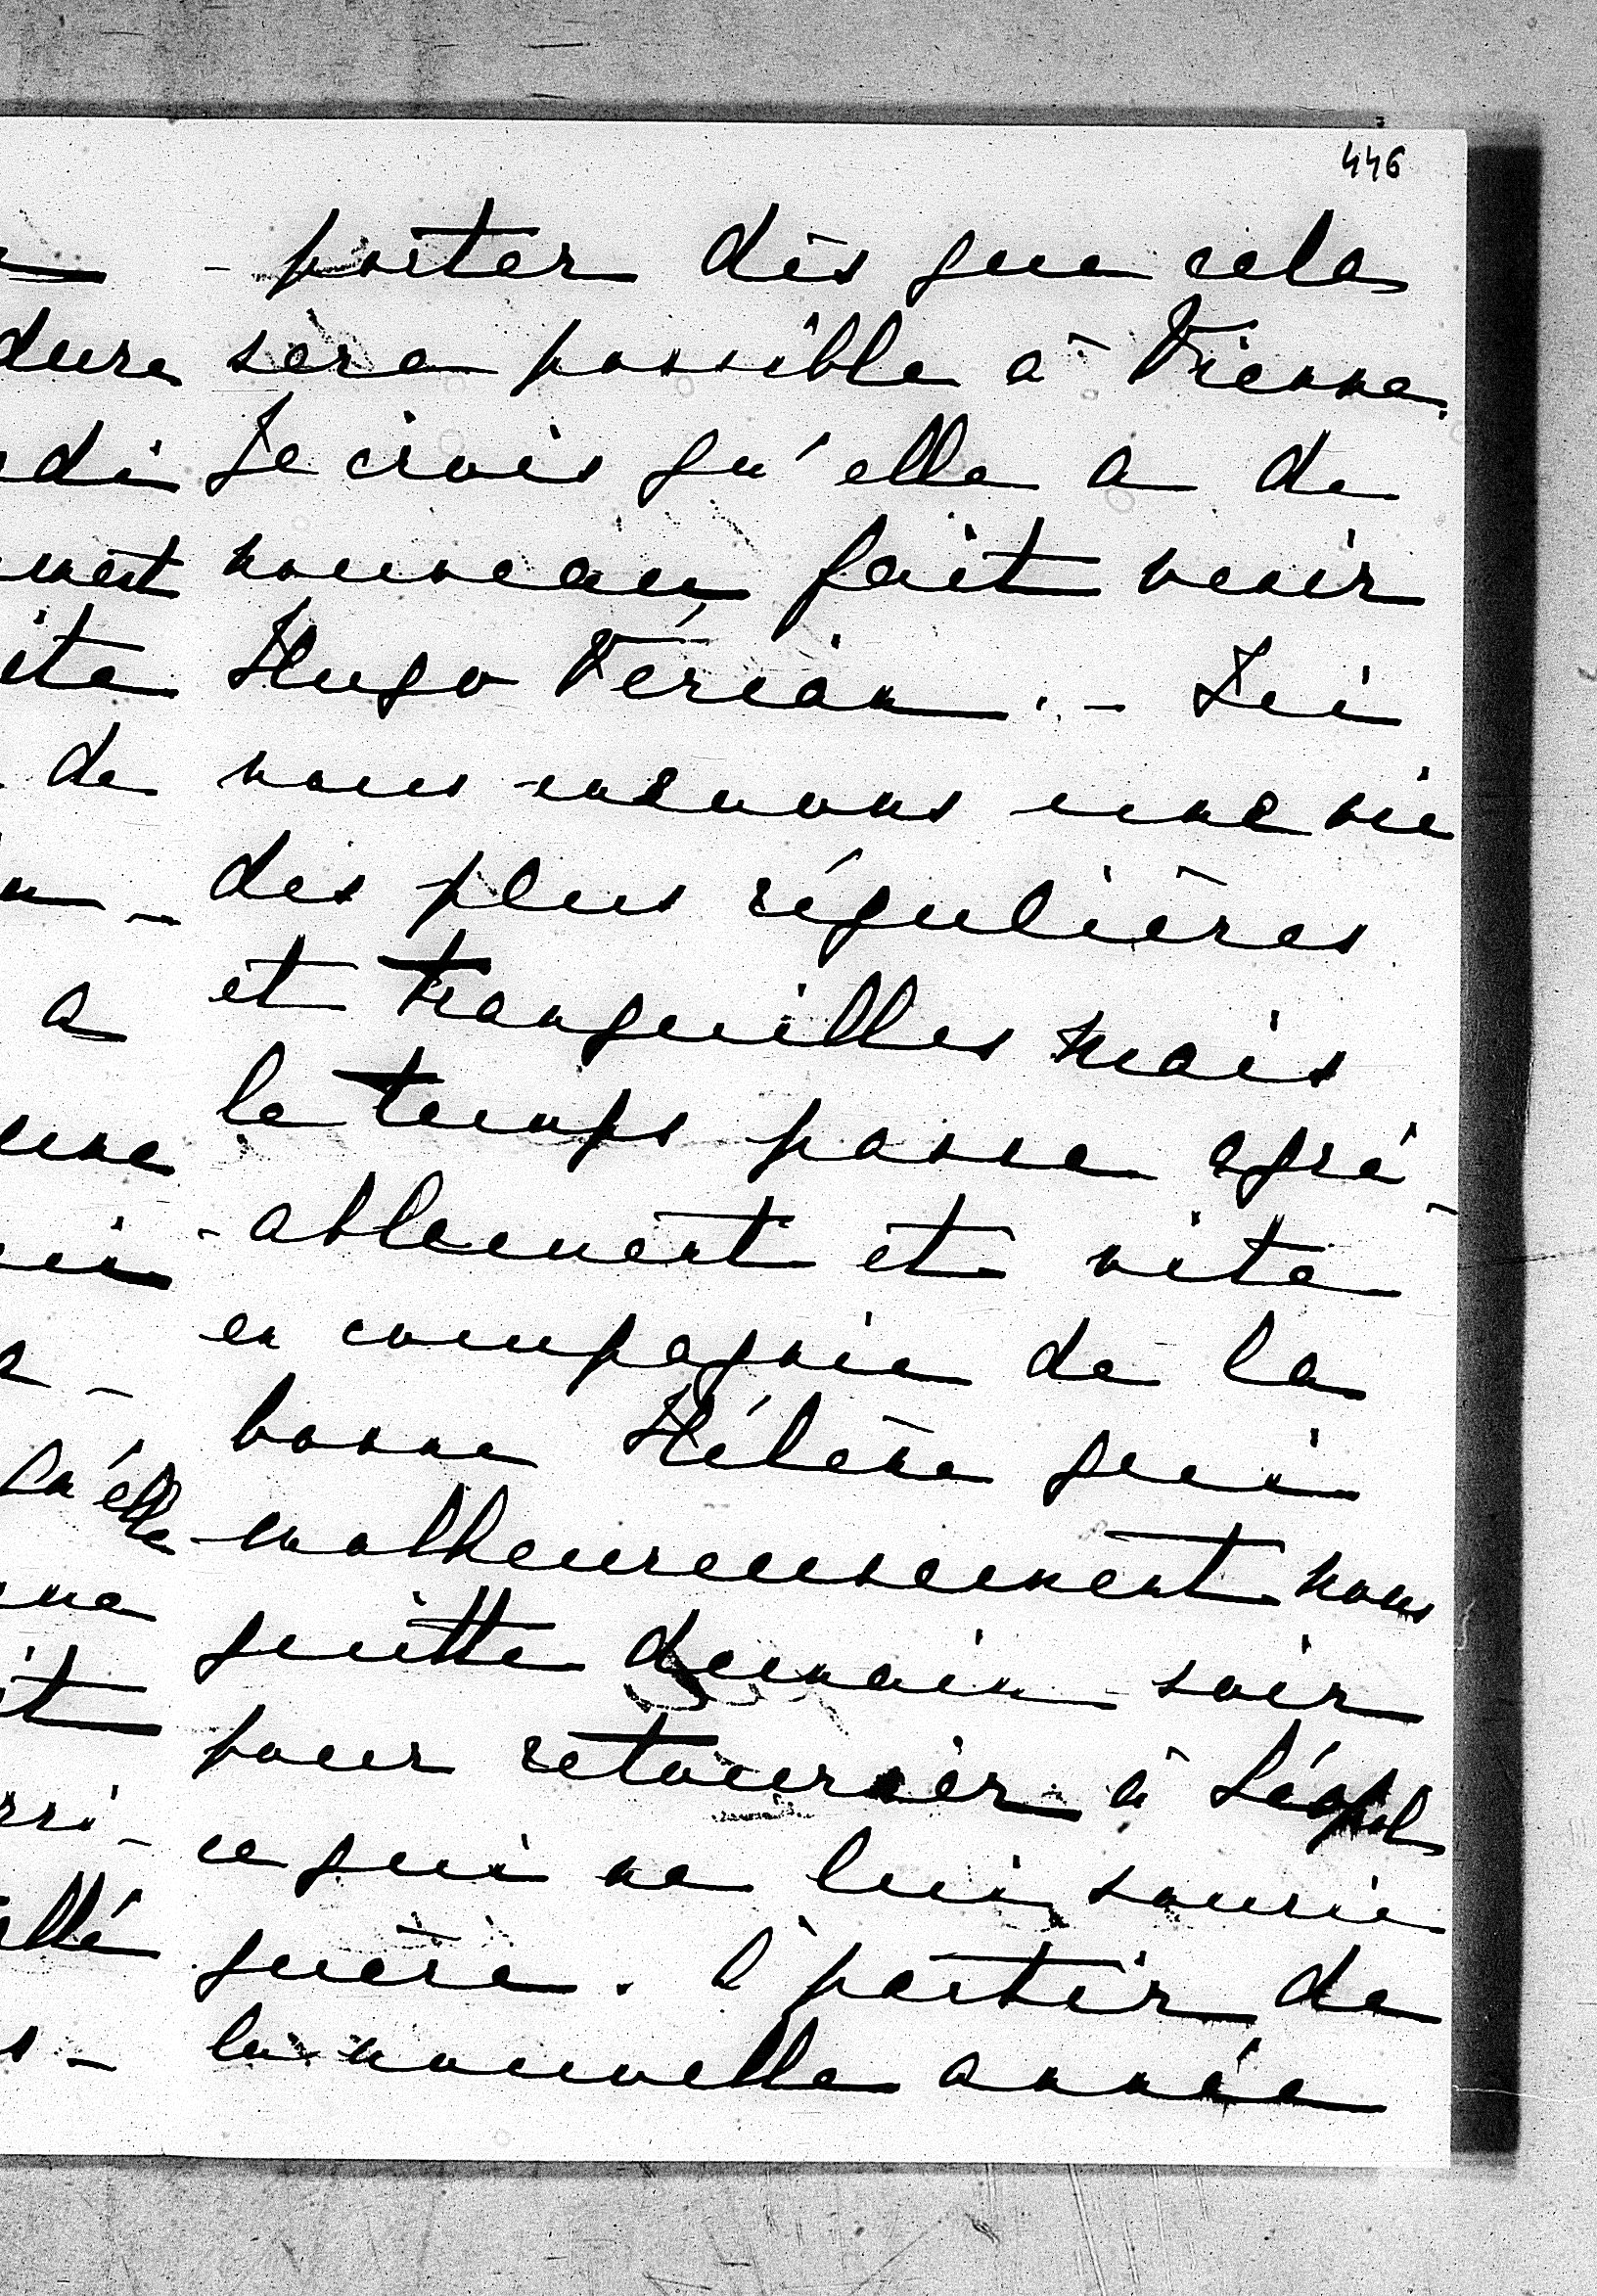 446
- porter dès que cela
sera possible à Vienne.
Je crois qu'elle a de
nouveau fait venir
Hugo Vérian. - Ici
nous menons une vie
des plus régulières
et tranquilles mais
le temps passe agré-
- ablement et vite
en compagnie de la
bonne Hélène qui
malheureusement nous
quitte demain soir
pour retourner à Léopol
ce qui ne lui sourie
guère. à partir de
la nouvelle année